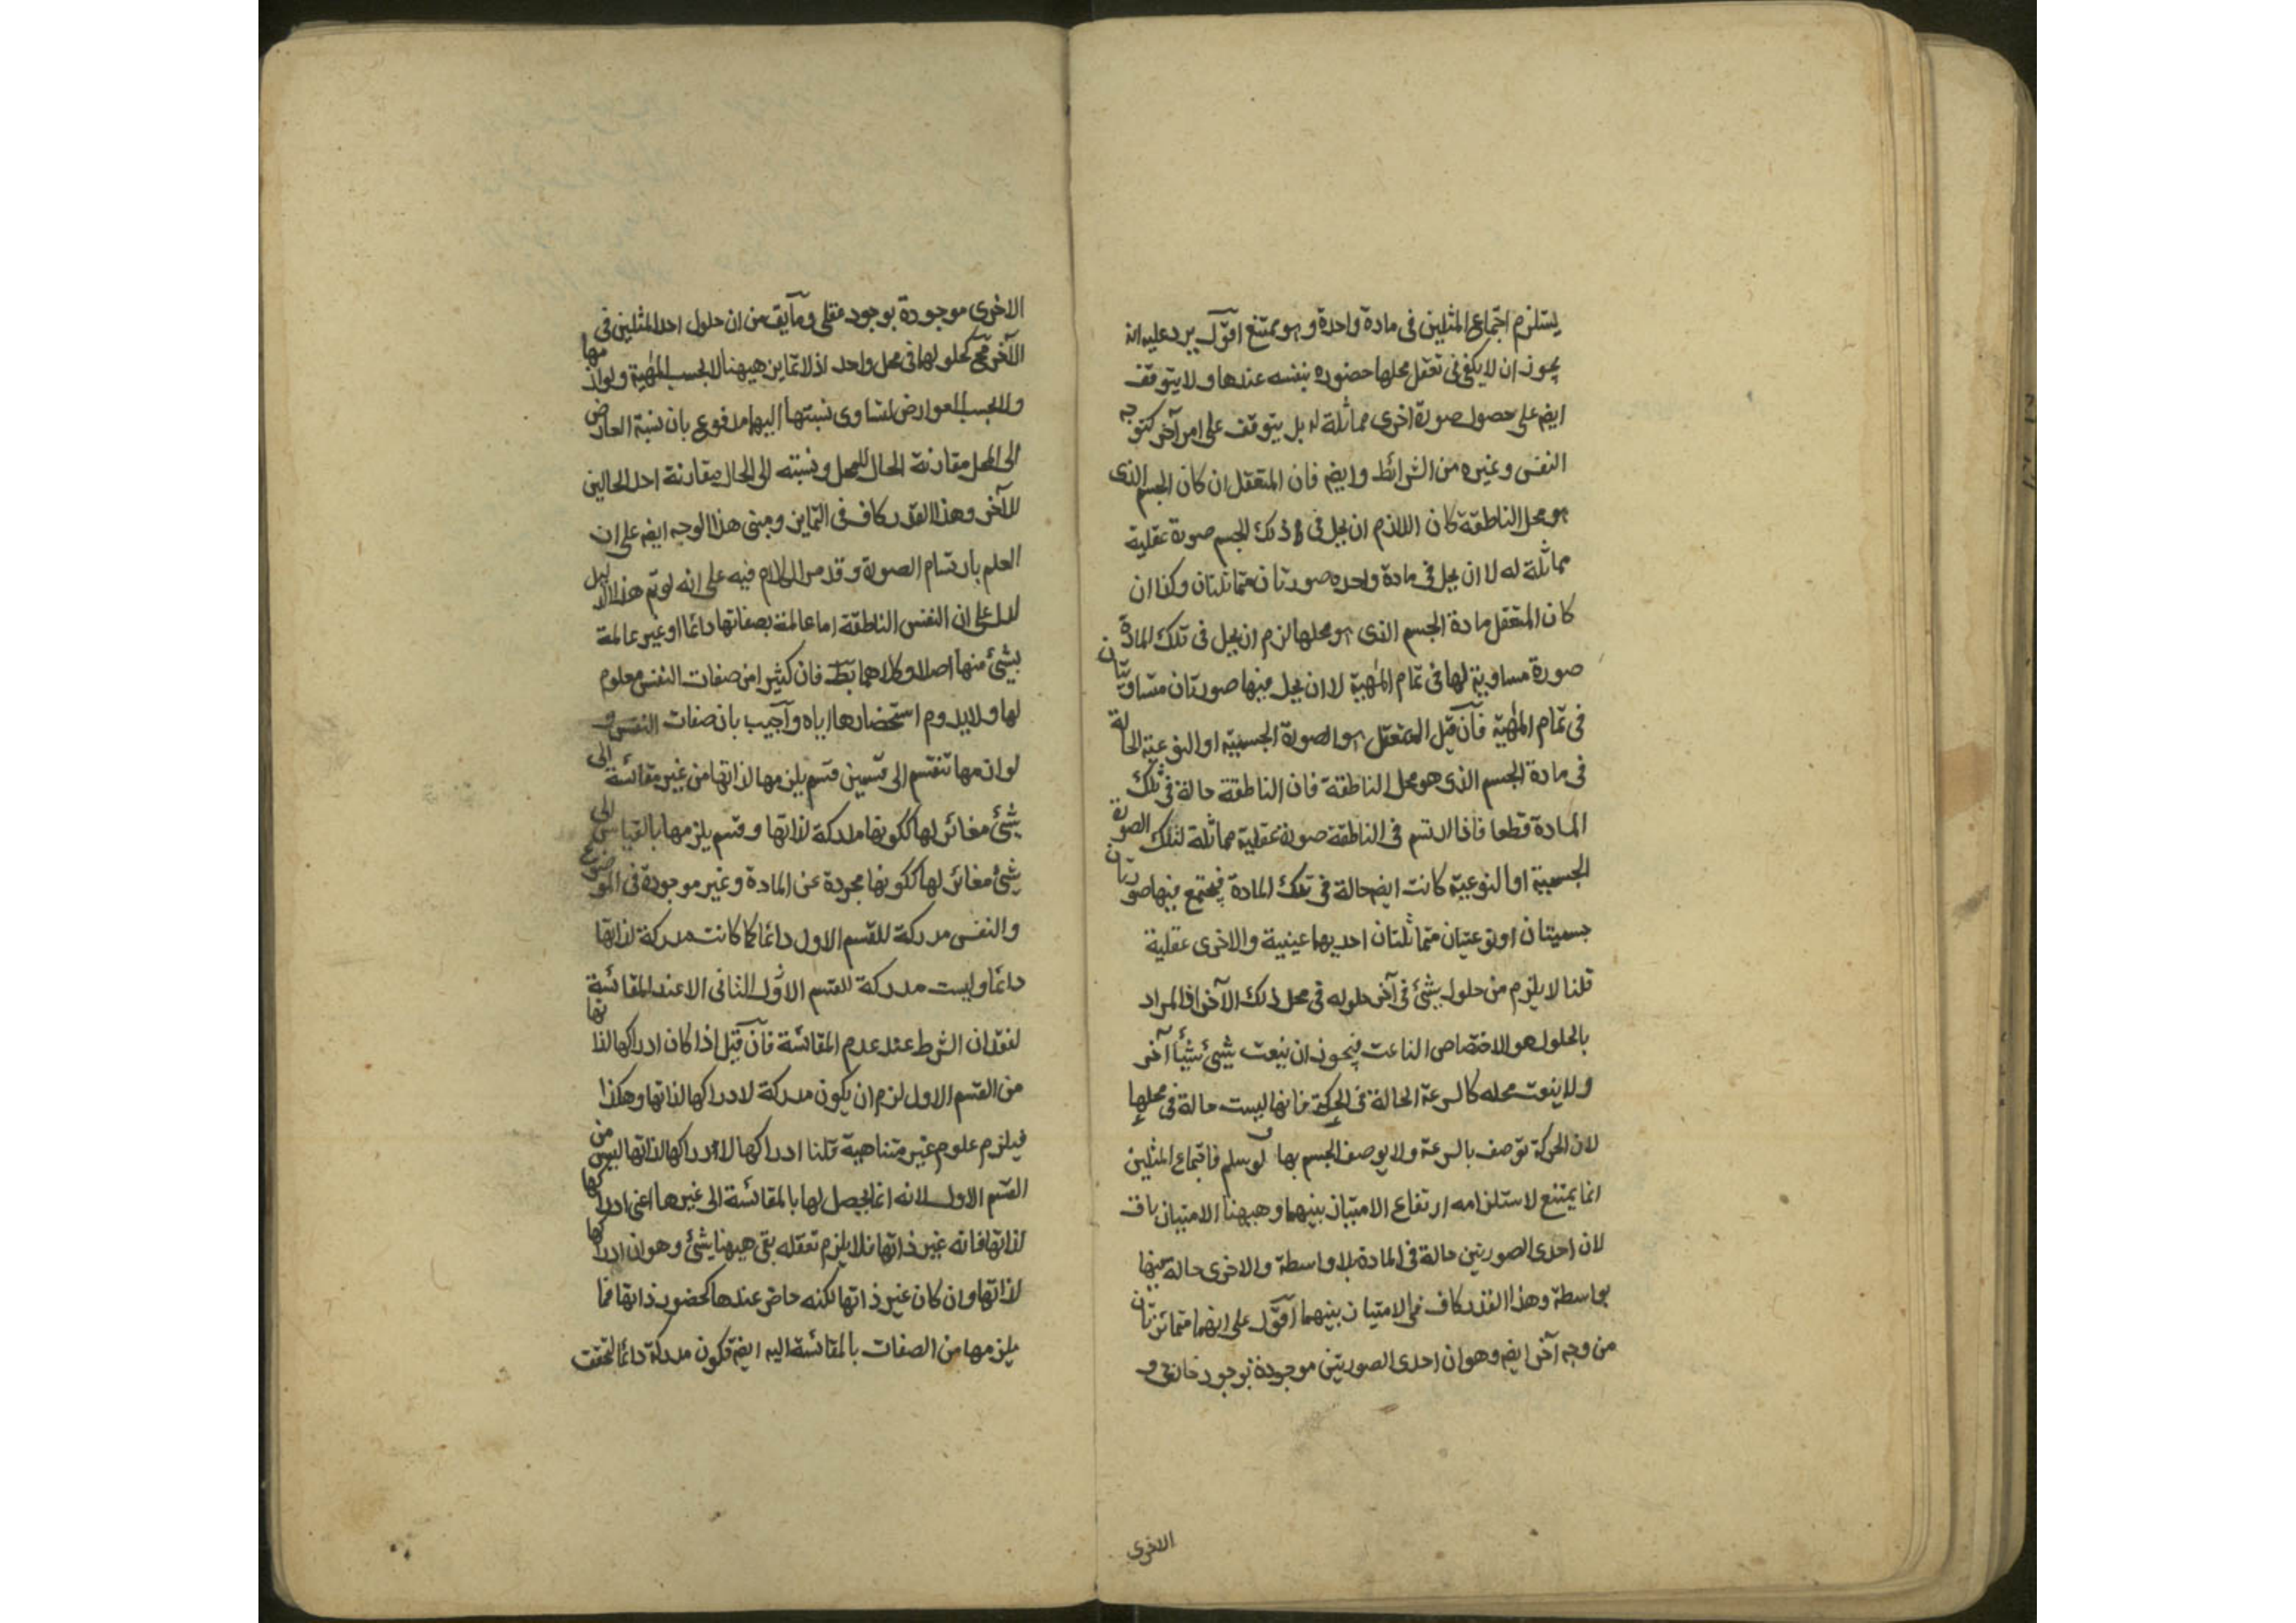 يستلزم اجتماع المثلين فى مادة واحدة وهو ممتنع اقول يرد عليه انه
يجوز ان لا يكفى فى تعقل محلها حضوره بنفسه عندها ولا يتوقف
ايضم على حصول صورة اخرى مماثلة له بل يتوقف على امر آخر كتوجه
النفس وغيره من الشرائط وايضم فان المتعقل ان كان الجسم الذى
هو محل الناطقة كان اللازم ان يحل فى ذلك الجسم صورة عقلية
مماثلة له لا ان يحل فى مادة واحده صورتان متماثلتان وكذا ان
كان المتعقل مادة الجسم الذى هو محلها لزم ان يحل فى تلك المادة
صورة مساوية لها فى تمام المهية لا ان يحل فيها صورتان متساويتان
فى تمام المهية فان قيل المتعقل هو الصورة الجسمية او النوعية الحالة
فى مادة الجسم الذى هو محل الناطقة فان الناطقة حالة فى تلك
المادة قطعا فاذا ارتسم فى الناطقة صورة عقلية مماثلة لتلك الصورة
الجسمية او النوعية كانت ايضم حالة فى تلك المادة فيجتمع فيها صورتان
جسميتان او نوعيتان متماثلتان احديهما عينية والاخرى عقلية
قلنا لا يلزم من حلول شئ فى آخر حلوله فى محل ذلك الآخر اذ المراد
بالحلول هو الاختصاص الناعت فيجوز ان ينعت شيئ شيئا آخر
ولا ينعت محله كالسرعة الحالة فى الحركة فانها ليست حالة فى محلها
لان الحركة توصف بالسرعة ولا يوصف الجسم بها ولو سلم فاجتماع المثلين
انما يمتنع لاستلزامه ارتفاع الامتياز بينهما وهيهنا الامتياز باق
لان احدى الصورتين حالة فى المادة بلا واسطة والاخرى حالة فيها
بواسطة وهذا القدر كاف فى الامتياز بينهما اقول على انهما متمائزتان
من وجه آخر ايضم وهو ان احدى الصورتين موجودة بوجود خارجى و
الاخرى
الاخرى موجودة بوجود عقلى وما يق من ان حلول احد المثلين فى
الآخر مح كحلولها فى محل واحد اذ لا تمايز هيهنا لا بحسب المهية ولوازمها
ولا بحسب العوارض لتساوى نسبتها اليهما مدفوع بان نسبة العارض
الى المحل مقارنة الحال للمحل ونسبته الى الحال مقارنة احد الحالين
للآخر وهذا القدر كاف فى التمايز ومبنى هذا الوجه ايضم على ان
العلم بارتسام الصورة وقد مر الكلام فيه على انه لو تم هذا الدليل
لدل على ان النفس الناطقة اما عالمة بصفاتها دائما او غير عالمة
بشئ منها اصلا وكلاهما بط فان كثيرا من صفات النفس معلوم
لها ولا يدوم استحضارها اياه وآجيب بان صفات النفس و
لوازمها تنقسم الى قسمين قسم يلزمها لذاتها من غير مقائسة الى
شئ مغائر لها ككونها مدركة لذاتها وقسم يلزمها بالقياس الى
شئ مغائر لها ككونها مجردة عن المادة وغير موجودة فى الموضوع
والنفس مدركة للقسم الاول دائما كما كانت مدركة لذاتها
دائما وليست مدركة للقسم الثانى الا عند المقائسة
لفقدان الشرط عند عدم المقائسة فان قيل اذا كان ادراكها لذاتها
من القسم الاول لزم ان يكون مدركة لادراكها لذاتها وهكذا
فيلزم علوم غير متناهية قلنا ادراكها لادراكها لذاتها ليس من
القسم الاول لانه انما يحصل لها بالمقائسة الى غيرها اعنى ادراكها
لذاتها فانه غير ذاتها فلا يلزم تعقله بقى هيهنا شئ وهو ان ادراكها
لذاتها وان كان غير ذاتها لكنه حاضر عندها كحضور ذاتها فما
يلزمها من الصفات بالمقائسة اليه ايضم تكون مدركة دائما لتحقق